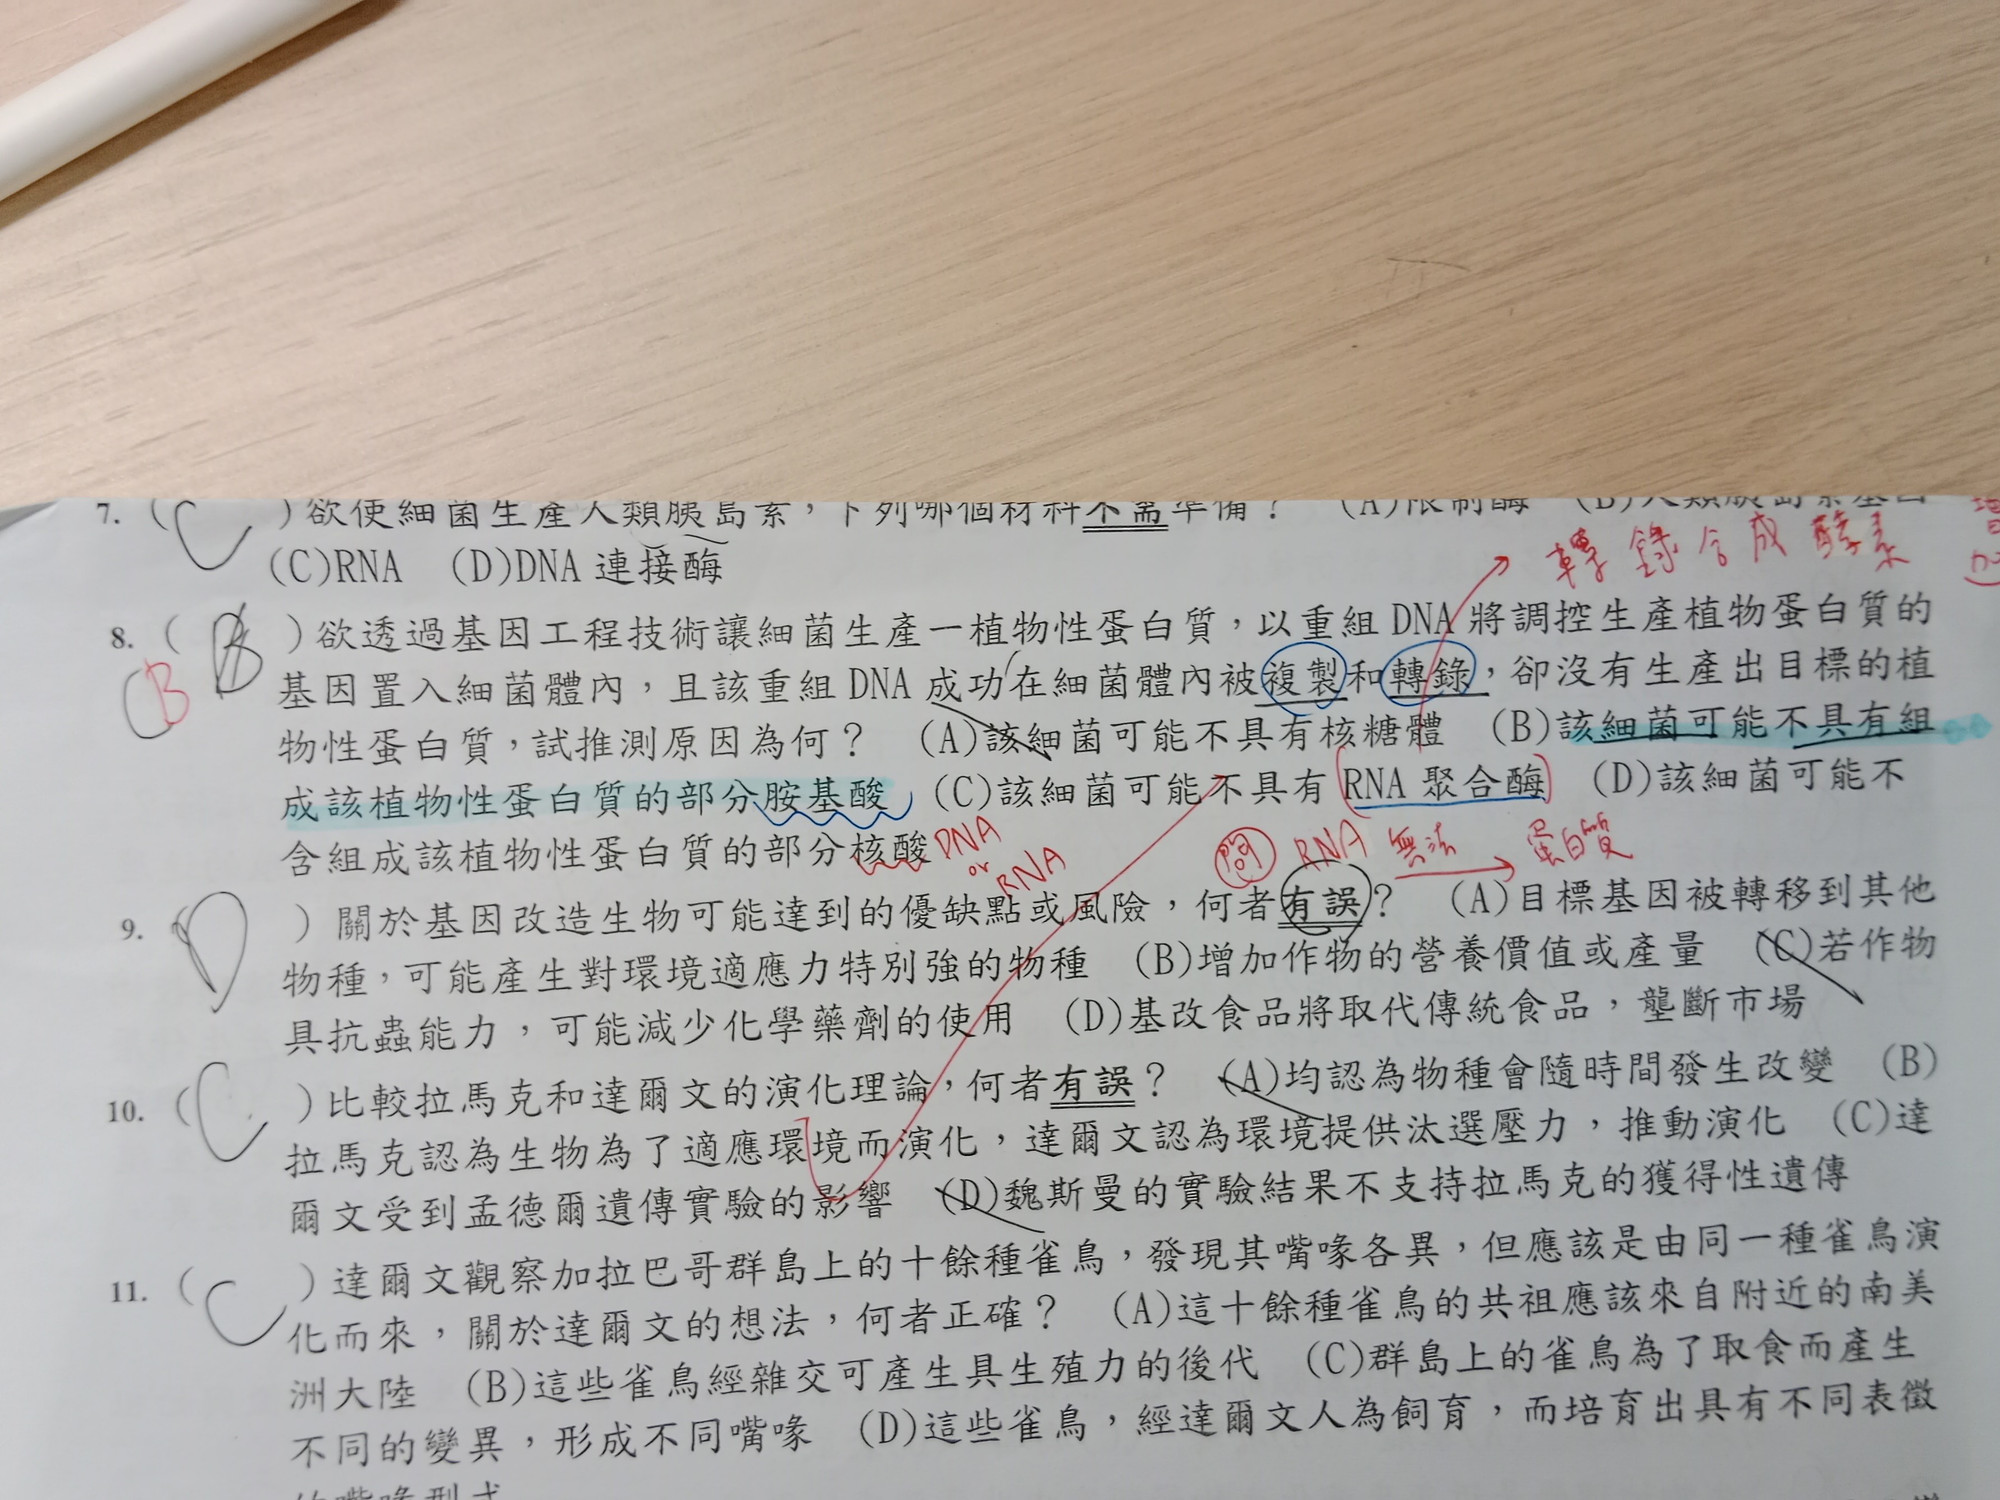 7. ( C )欲使細菌生產人類胰島素，下列哪個材料不需準備？ (A)限制酶 (B)人類胰島素基因
(C)RNA (D)DNA 連接酶
轉錄合成酵素
8. ( B )欲透過基因工程技術讓細菌生產一植物性蛋白質，以重組 DNA 將調控生產植物蛋白質的
B
基因置入細菌體內，且該重組 DNA 成功在細菌體內被複製和轉錄，卻沒有生產出目標的植
物性蛋白質，試推測原因為何？ (A)該細菌可能不具有核糖體 (B)該細菌可能不具有組
成該植物性蛋白質的部分胺基酸 (C)該細菌可能不具有 RNA 聚合酶 (D)該細菌可能不
含組成該植物性蛋白質的部分核酸
DNA
or
RNA
問 RNA 無法 → 蛋白質
9. ( D )關於基因改造生物可能達到的優缺點或風險，何者有誤？ (A)目標基因被轉移到其他
物種，可能產生對環境適應力特別強的物種 (B)增加作物的營養價值或產量 (C)若作物
具抗蟲能力，可能減少化學藥劑的使用 (D)基改食品將取代傳統食品，壟斷市場
10. ( C )比較拉馬克和達爾文的演化理論，何者有誤？ (A)均認為物種會隨時間發生改變 (B)
拉馬克認為生物為了適應環境而演化，達爾文認為環境提供汰選壓力，推動演化 (C)達
爾文受到孟德爾遺傳實驗的影響 (D)魏斯曼的實驗結果不支持拉馬克的獲得性遺傳
11. ( C )達爾文觀察加拉巴哥群島上的十餘種雀鳥，發現其嘴喙各異，但應該是由同一種雀鳥演
化而來，關於達爾文的想法，何者正確？ (A)這十餘種雀鳥的共祖應該來自附近的南美
洲大陸 (B)這些雀鳥經雜交可產生具生殖力的後代 (C)群島上的雀鳥為了取食而產生
不同的變異，形成不同嘴喙 (D)這些雀鳥，經達爾文人為飼育，而培育出具有不同表徵
的嘴喙型式